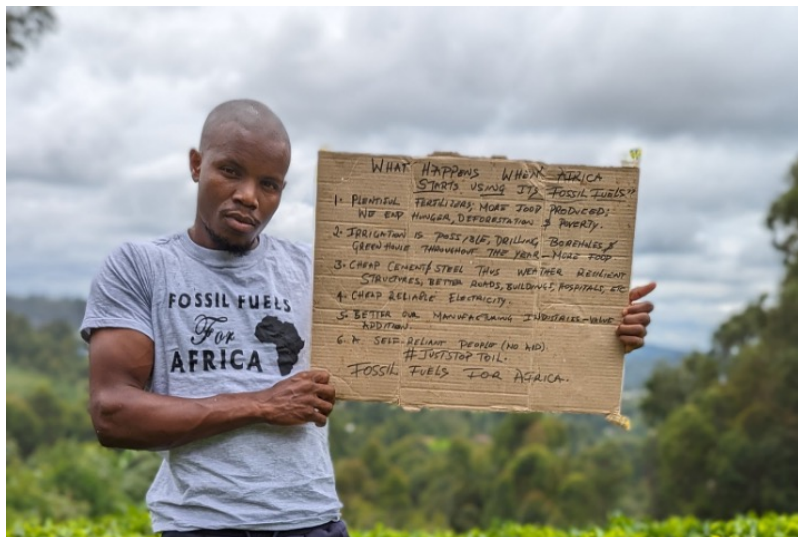 FOSSIL FUELS
For
AFRICA
WHAT HAPPENS WHEN AFRICA
STARTS USING ITS FOSSIL FUELS"
1. PLENTIFUL FERTILIZERS; MORE FOOD PRODUCED;
WE END HUNGER, DEFORESTATION & POVERTY.
2. IRRIGATION IS POSSIBLE, DRILLING BOREHOLES, &
GREENHOUSE THROUGHOUT THE YEAR - MORE FOOD
3. CHEAP CEMENT & STEEL THUS WEATHER RESILIENT
STRUCTURES, BETTER ROADS, BUILDINGS, HOSPITALS, ETC
4. CHEAP RELIABLE ELECTRICITY.
5. BETTER OUR MANUFACTURING INDUSTRIES - VALUE
ADDITION.
6. A SELF-RELIANT PEOPLE (NO AID)
#JUSTSTOPTOIL.
FOSSIL FUELS FOR AFRICA.